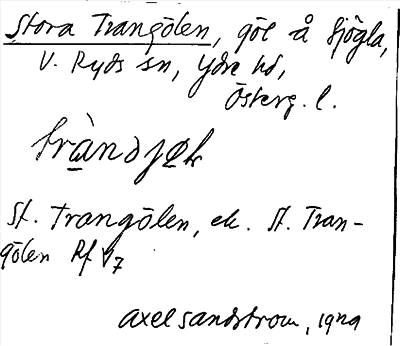 Stora Trangölen, göl å Sjögla,
V. Ryds sn, Ydre hd,
Österg. l.
St. Trangölen, ek. St. Tran-
gölen Rf 1/7
Axel Sandström, 1929